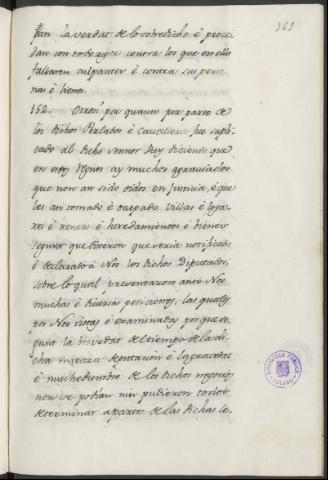 363
pan la verdat de lo sobredicho é proce
dan con todo rigor contra los que en ello
fallaren culpantes é contra sus perso
nas é bienes.
152. Otrosí por quanto por parte de
los dichos Perlados é Cavalleros fue supli
cado al dicho Sennor Rey diciendo que
en estos Regnos ay muchos agraviados
que non an sido oidos en Justicia, é que
les an tomado é ocupado Villas é loga
res é rentas é heredamientos é bienes
segunt que dixeron que seria notificado
é declarado á Nos los dichos Diputados,
sobre lo qual presentaron ante Nos
muchas é diversas peticiones, las quales
por Nos vistas é examinadas, por que re
quiria la brevedat del tiempo de la di
cha nuestra deputacion é la graveza
é muchedumbre de los dichos negocios
non se podian nin pudieron todos
determinar aparte de las dichas
BIBLIOTECA PUBLICA
TOLEDO